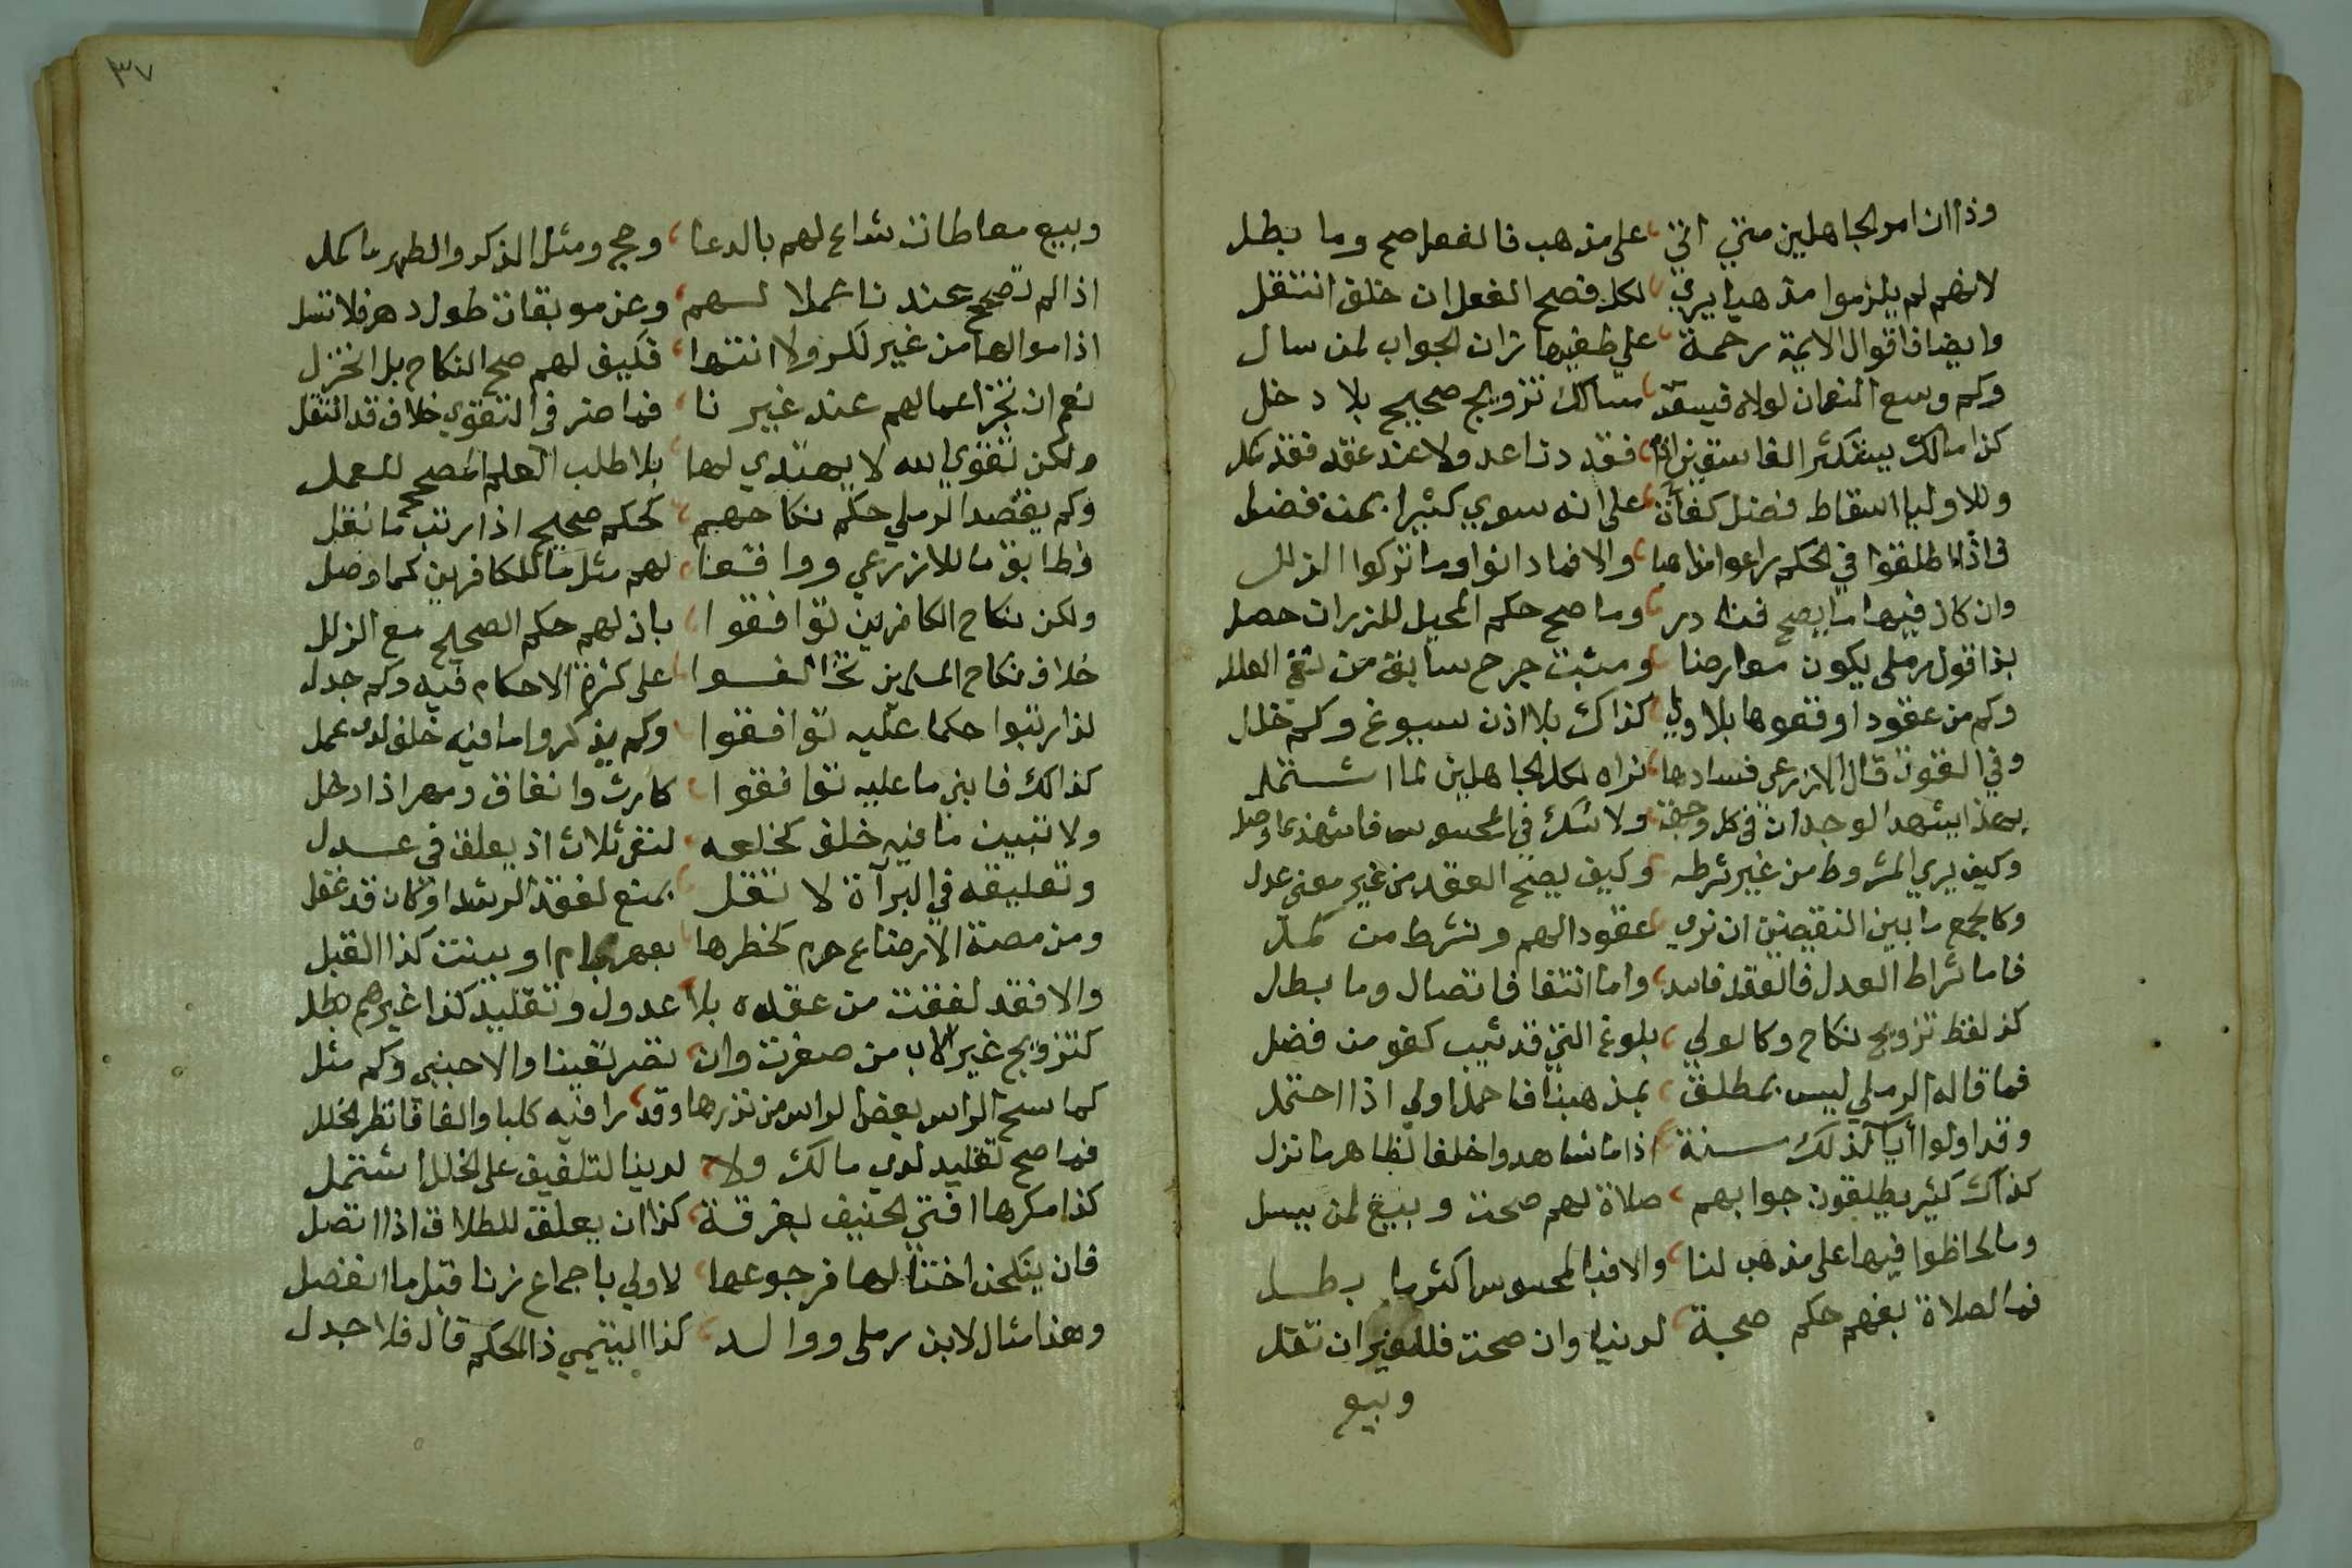 وذا ان امر الجاهلين متي اتي على مذهب فالفعل صح وما بطل
لانهم لم يلزموا مذهبا يري لكل فصح الفعل ان خلق انتقل
وايضا فاقوال الايمة رحمة على طبقها تران الجواب لمن سال
وكم وسع النعمان لولاه فيسقة مسالك تزويج صحيح بلا دخل
كذا مالك بيتكثر الفاسقين اذا فقد تاعد ولا عند عقد فقد كمل
وللاوليا اسقاط فضل كفأة على انه سوي كثيرا بمن فضل
فاذا اطلقوا في الحكم راعوا مذاهبا والا فما دانوا وما تركوا الزلل
وان كان فيها ما يصح فنادر وما صح حكم المحيل للنزران حصل
بذا قول رملى يكون معارضا ومثبت جرح سابق من نفي العلل
وكم من عقود اوقعوها بلا ولي كذاك بلا اذن سبوغ وكم خلل
وفي القوت قال الازرعي فسادها نراه لكل الجاهلين لما اشتمل
بهذا يشهد الوجدان في كل وجهة ولا شك في المحسوس فاشهد بما وصل
وكيف يري المشروط من غير شرطه وكيف يصح العقد من غير معنى عدل
وكالجمع ما بين النقيضين ان نري عقودا لهم وشرط من كمل
فاما شراط العدل فالعقد فاسد واما انتفا فاتصال وما بطل
كذ لفظ تزويج نكاح وكالولي بلوغ التي قد ثيب كفو من فضل
فما قاله الرملي ليس بمطلق بمذهبنا فاحمل اولي اذا احتمل
وقد اولوا أيا كذلك سنة اذا ما شاهدوا خلفا لظاهر ما نزل
كذاك كثير يطلقون جوابهم صلاة لهم صحت وبيع لمن يسل
وما لحاظوا فيها على مذهب لنا والا فبالمحسوس اكثر ما بطل
فما لصلاة بفهم حكم صحبة لدينا وان صحت فللغير ان تقل
وبيع
٣٧
وبيع معاطات شاع لهم بالدعا وحج ومثل الذكر والطهر ما كمل
اذا لم تصح عندنا عملا لهم وعن موبقات طول دهر فلا تسل
اذا موالها من غير نكر ولا انتها فكيف لهم صح النكاح بل انخزل
نعم ان تجز اعمالهم عند غيرنا فما ضر في التقوي خلاف قد انتقل
ولكن تقوي الله لا يهتدي لها بلا طلب العلم المصحح للعمل
وكم يقصد الرملي حكم نكاحهم كحكم صحيح اذا رتب ما نقل
فطابق ما للازرعي ووافقنا لهم مثل ما للكافرين كما وصل
ولكن نكاح الكافرين توافقوا بان لهم حكم الصحيح مع الزلل
خلاف نكاح المسلمين تخالفوا على كثرة الاحكام فيه وكم جدل
لذا رتبوا حكما عليه توافقوا وكم يذكروا ما فيه خلف لدى عمل
كذالك فابنِ ما عليه توافقوا كارث وانفاق ومهر اذا دخل
ولا تبيين ما فيه خلف كخلعه لنفي ثلاث اذ يعلق في عدل
وتعليقه في البرآة لا تقل بمنع لفقد الرشد او كان قد غفل
ومن مصة الارضاع حرم كخطرها بعهر بام او ببنت كذا القبل
والا فقد لفقت من عقده بلا عدول وتقليد كذا غيرهم بطل
كتزويج غير الاب من صغرت وان تضر يقينا والاجنبي وكم مثل
كما سح الراس بعض الراس من نزرها وقد رافيه كلبا والفا فانظر الخلل
فما صح تقليد لدي مالك ولا لدينا لتلفيق على الخلل اشتمل
كذا مكرها افتي الحنيف بفرقة كذا ان يعلق للطلاق اذا اتصل
فان ينكحن اختا لها فرجوعها لاولي باجماع زنا قبل ما انفصل
وهذا مثال لابن رملى ووالد كذا البيتمي ذا الحكم قال فلا جدل